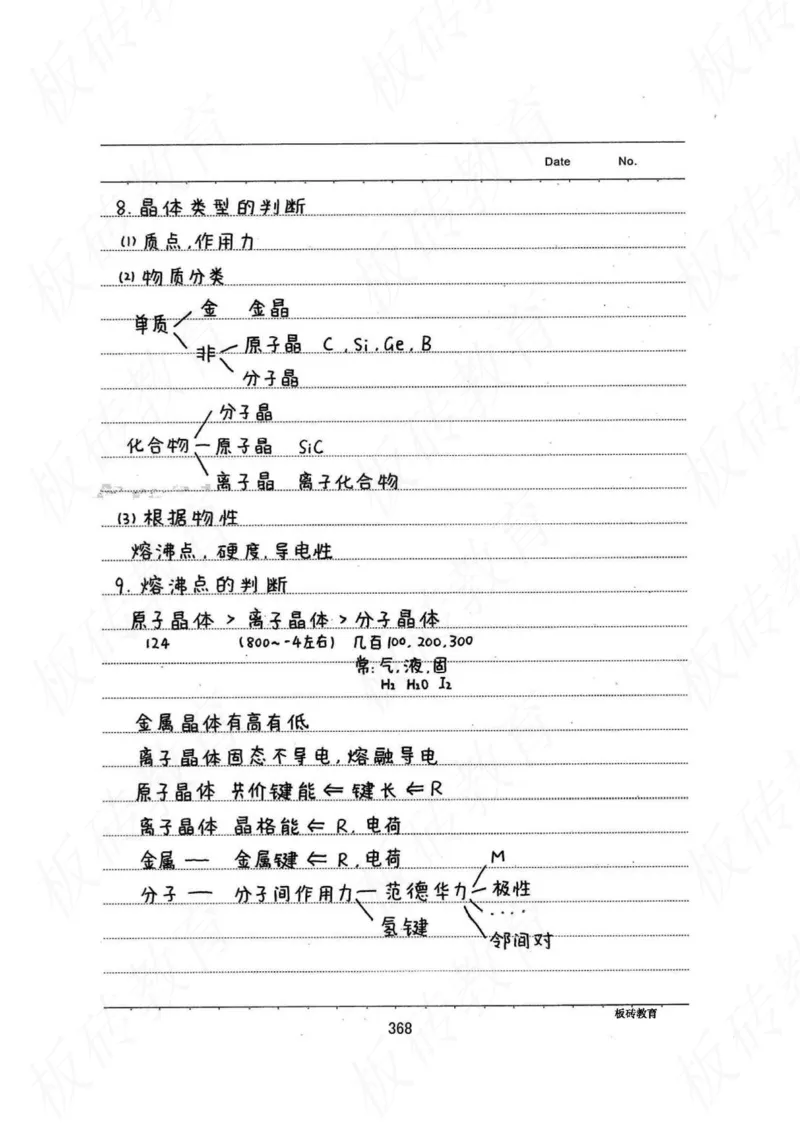 Date No.
8. 晶体类型的判断
(1) 质点,作用力
(2) 物质分类
金 金晶
单质
非 原子晶 C,Si,Ge,B
分子晶
分子晶
化合物 — 原子晶 SiC
离子晶 离子化合物
(3) 根据物性
熔沸点,硬度,导电性
9. 熔沸点的判断
原子晶体 > 离子晶体 > 分子晶体
124 (800~-4左右) 几百100,200,300
常:气,液,固
H₂ H₂O I₂
金属晶体有高有低
离子晶体固态不导电,熔融导电
原子晶体 共价键能 ⇐ 键长 ⇐ R
离子晶体 晶格能 ⇐ R,电荷
金属 — 金属键 ⇐ R,电荷 M
分子 — 分子间作用力 — 范德华力 — 极性
....
氢键 邻间对
板砖教育
368